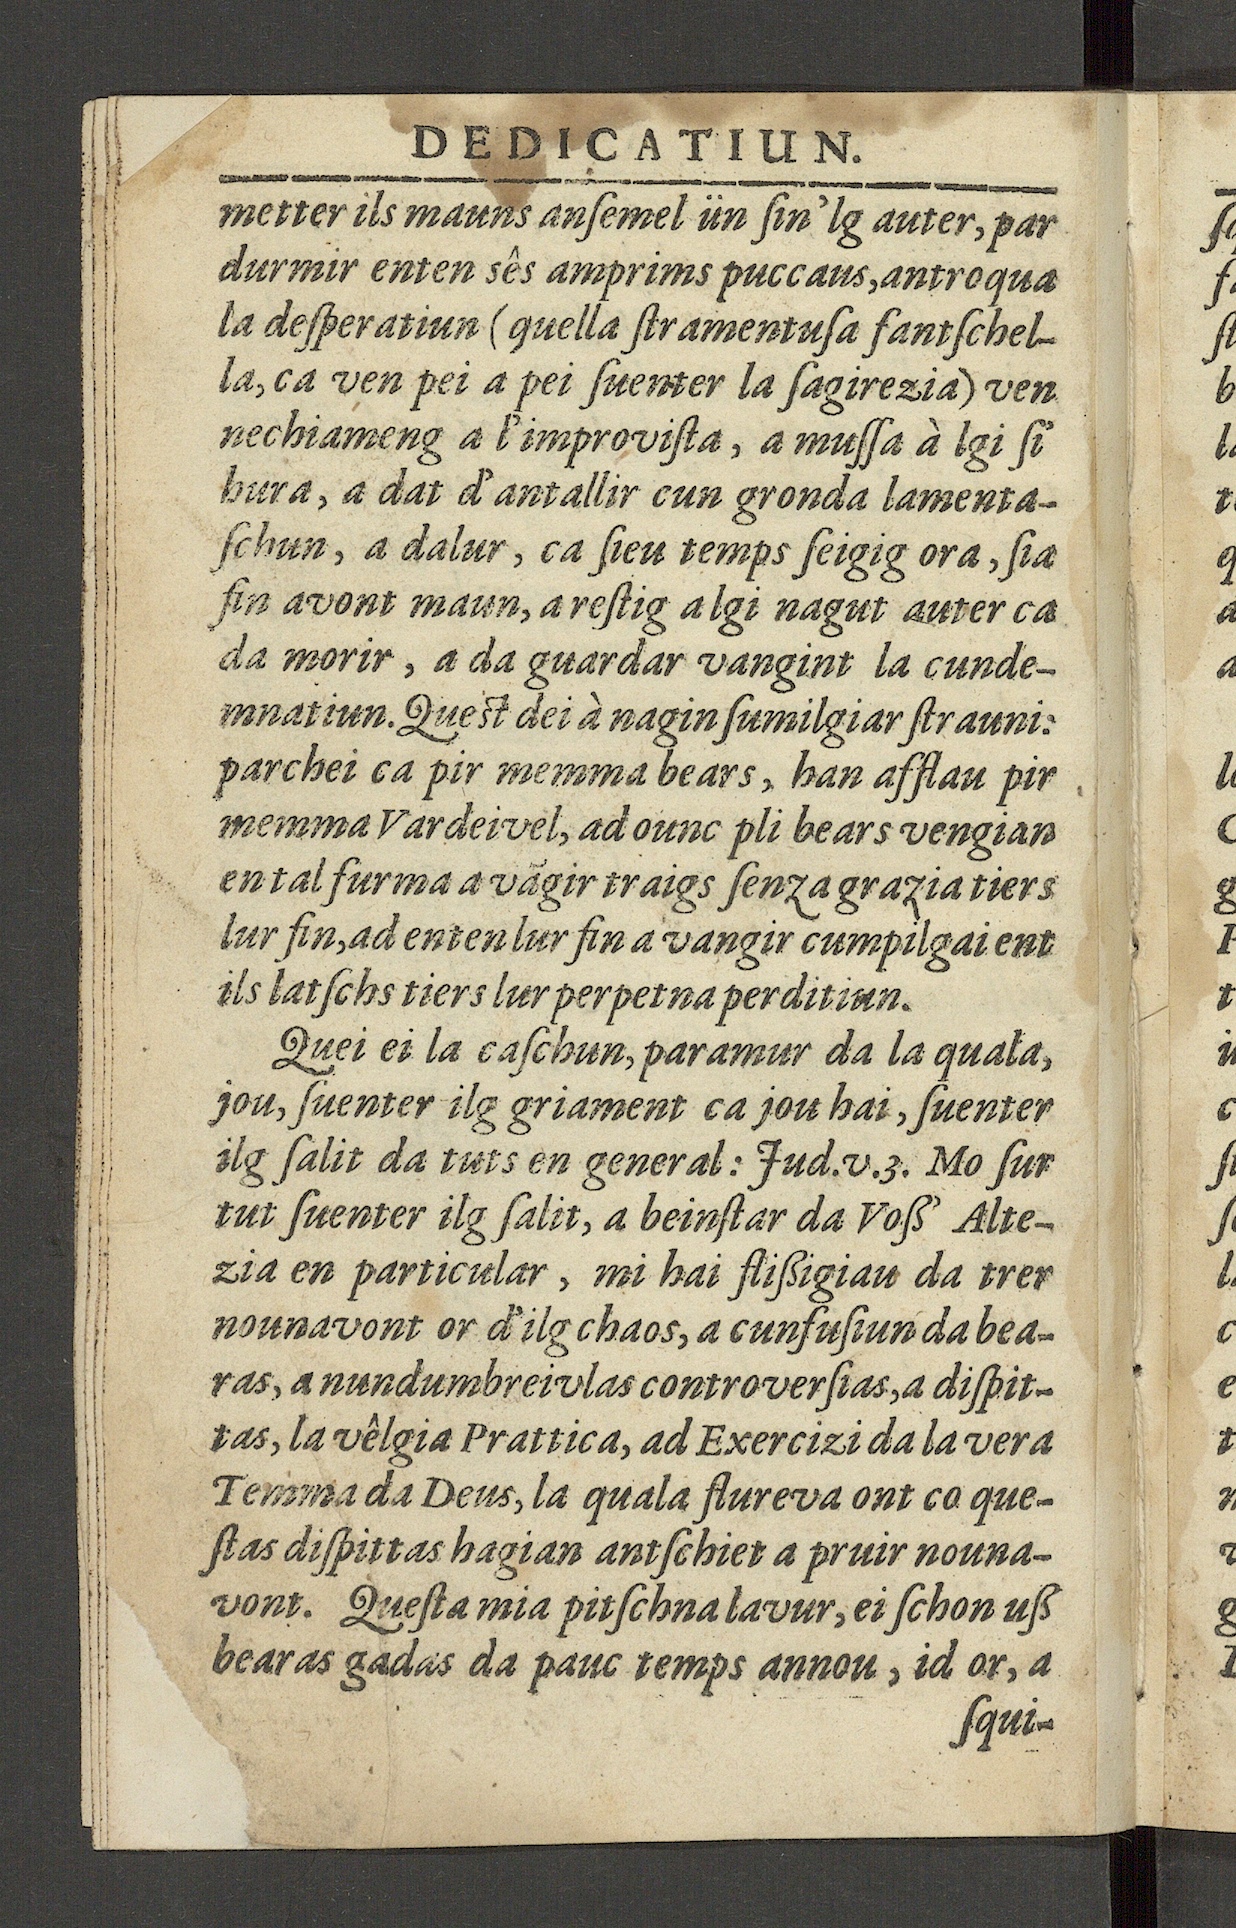 DEDICATIUN.
metter ils mauns anſemel ün ſin'lg auter, par
durmir enten sês amprims puccaus, antroqua
la deſperatiun (quella ſtramentuſa fantſchel-
la, ca ven pei a pei ſuenter la ſagirezia) ven
nechiameng a l'improviſta, a muſſa à lgi ſi'
hura, a dat d'antallir cun gronda lamenta-
ſchun, a dalur, ca ſieu temps ſeigig ora, ſia
fin avont maun, a reſtig a lgi nagut auter ca
da morir, a da guardar vangint la cunde-
mnatiun. Queſt dei à nagin ſumilgiar ſtrauni:
parchei ca pir memma bears, han afflau pir
memma Vardeivel, ad ounc pli bears vengian
en tal furma a vãgir traigs ſenza grazia tiers
lur fin, ad enten lur fin a vangir cumpilgai ent
ils latſchs tiers lur perpetna perditiun.
Quei ei la caſchun, par amur da la quala,
jou, ſuenter ilg griament ca jou hai, ſuenter
ilg ſalit da tuts en general: Jud.v.3. Mo ſur
tut ſuenter ilg ſalit, a beinſtar da Voß' Alte-
zia en particular, mi hai flißigiau da trer
nounavont or d'ilg chaos, a cunfuſiun da bea-
ras, a nundumbreivlas controverſias, a diſpit-
tas, la vêlgia Prattica, ad Exercizi da la vera
Temma da Deus, la quala flureva ont co que-
ſtas diſpittas hagian antſchiet a pruir nouna-
vont. Queſta mia pitſchna lavur, ei ſchon uß
bearas gadas da pauc temps annou, id or, a
ſqui-